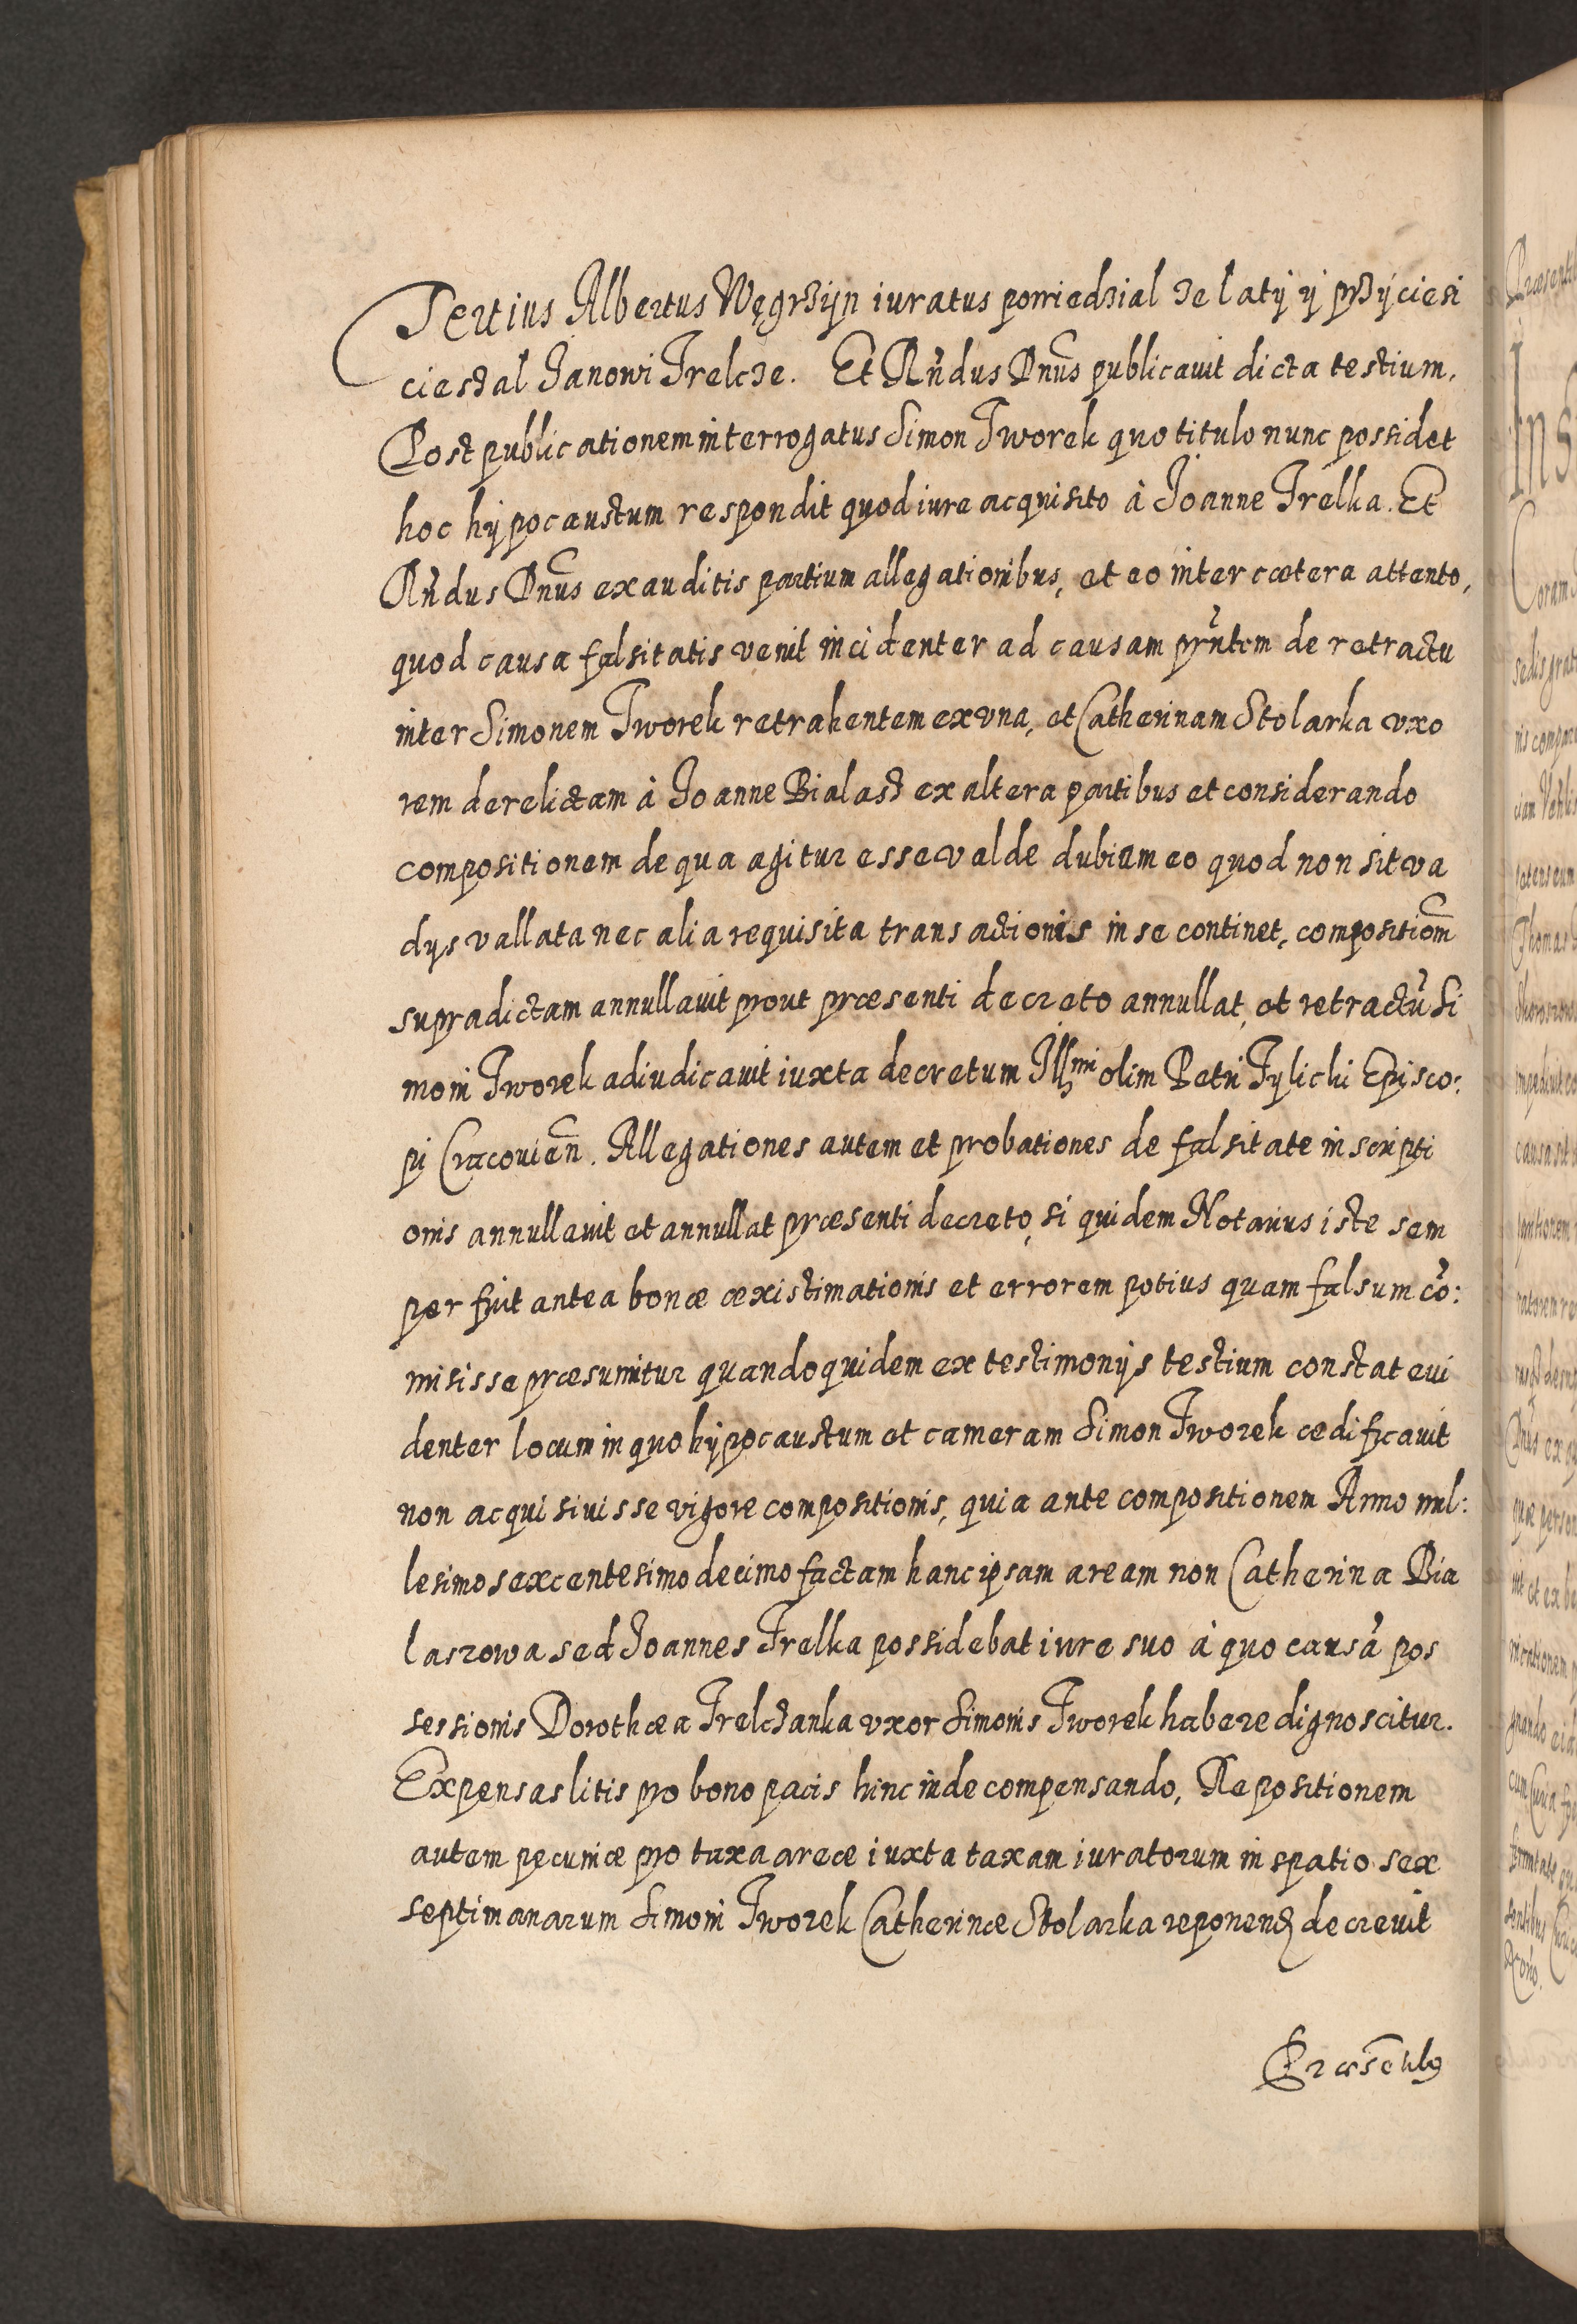 Tertius Albertus Węgrzijn iuratus powiedzial ze laty y przyciesi
ciesz al Janowi Trelcze. Et Rndus Dnus publicauit dicta testium.
Post publicationem interrogatus Simon Tworek quo titulo nunc possidet
hoc hypocaustum respondit quod iure acquisito à Joanne Trelka. Et
Rndus Dnus exauditis partium allegationibus, et eo inter cœtera attento,
quod causa falsitatis venit incidenter ad causam prntem de retractu
inter Simonem Tworek retrahentem ex vna, et Catherinam Stolarka vxo
rem derelictam à Joanne Bialasz ex altera partibus et considerando
compositionem de qua agitur esse valde dubiam eo quod non sit va
dys vallata nec alia requisita transactionis in se continet, compositiom
supradictam annullauit prout præsenti decreto annullat, et retractũ Si
moni Tworek adiudicauit iuxta decretum Illmi olim Petri Tylicki Episco:
pi Cracouien. Allegationes autem et probationes de falsitate inscripti
onis annullauit et annullat præsenti decreto, si quidem Notarius iste sem
per fuit antea bonæ æxistimationis et errorem potius quam falsum cõ:
misisse præsumitur quandoquidem ex testimonijs testium constat eui
denter locum in quo hypocaustum et cameram Simon Tworek ædificauit
non acquisiuisse vigore compositionis, quia ante compositionem Anno mil:
lesimo sexcentesimo decimo factam hanc ipsam aream non Catherina Bia
laszowa sed Joannes Trelka possidebat iure suo à quo causã pos
sessionis Dorothæa Trelczanka vxor Simonis Tworek habere dignoscitur.
Expensas litis pro bono pacis hinc inde compensando, Repositionem
autem pecuniæ pro taxa areæ iuxta taxam iuratorum in spatio sex
septimanarum Simoni Tworek Catherinæ Stolarka reponend decreuit
Præsẽtibꝰ